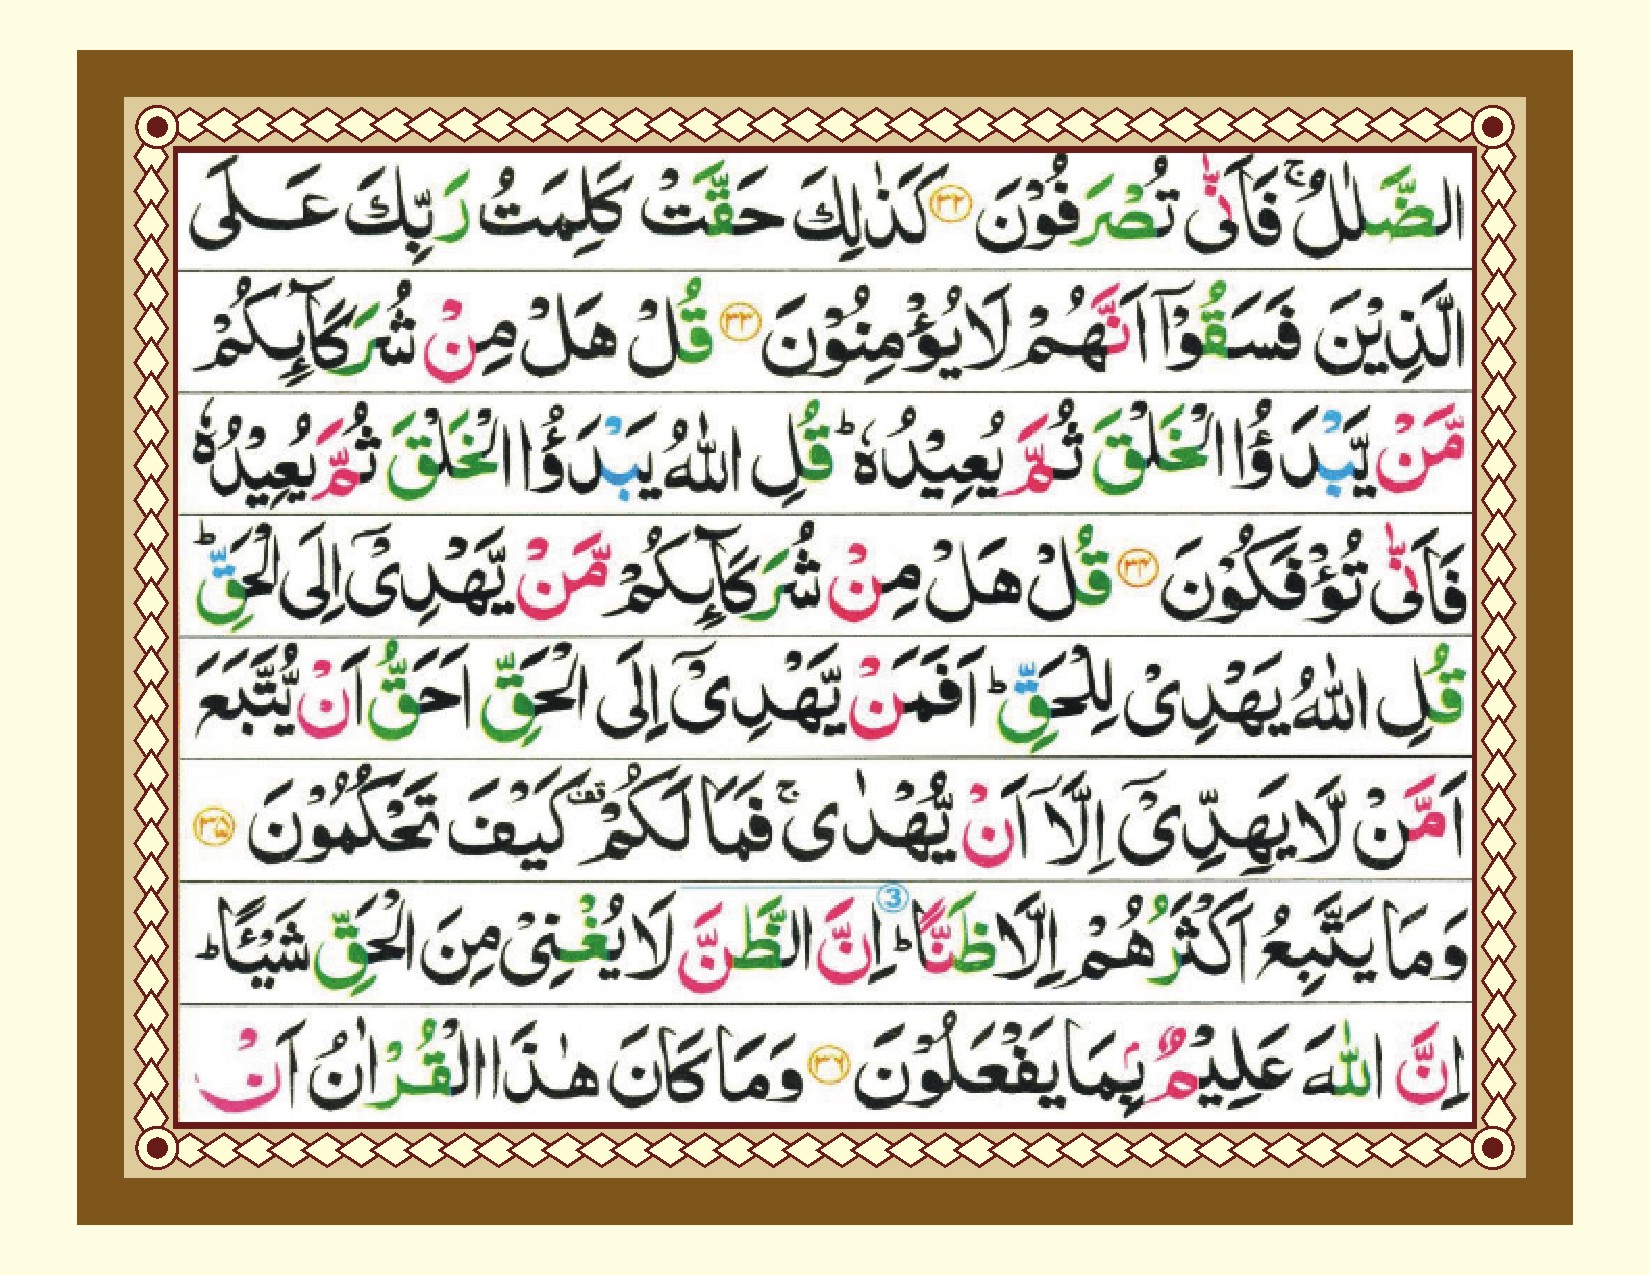 الضَّلٰلُ ۚ فَاَنّٰى تُصْرَفُوْنَ ﴿۳۲﴾ كَذٰلِكَ حَقَّتْ كَلِمَتُ رَبِّكَ عَلَى
الَّذِيْنَ فَسَقُوْۤا اَنَّهُمْ لَا يُؤْمِنُوْنَ ﴿۳۳﴾ قُلْ هَلْ مِنْ شُرَكَآىِٕكُمْ
مَّنْ يَّبْدَؤُا الْخَلْقَ ثُمَّ يُعِيْدُهٗ ؕ قُلِ اللّٰهُ يَبْدَؤُا الْخَلْقَ ثُمَّ يُعِيْدُهٗ
فَاَنّٰى تُؤْفَكُوْنَ ﴿۳۴﴾ قُلْ هَلْ مِنْ شُرَكَآىِٕكُمْ مَّنْ يَّهْدِىْۤ اِلَى الْحَقِّ ؕ
قُلِ اللّٰهُ يَهْدِىْ لِلْحَقِّ ؕ اَفَمَنْ يَّهْدِىْۤ اِلَى الْحَقِّ اَحَقُّ اَنْ يُّتَّبَعَ
اَمَّنْ لَّا يَهِدِّىْۤ اِلَّاۤ اَنْ يُّهْدٰى ۚ فَمَا لَكُمْ قف كَيْفَ تَحْكُمُوْنَ ﴿۳۵﴾
وَمَا يَتَّبِعُ اَكْثَرُهُمْ اِلَّا ظَنًّا ؕ 3 اِنَّ الظَّنَّ لَا يُغْنِىْ مِنَ الْحَقِّ شَيْـًٔا ؕ
اِنَّ اللّٰهَ عَلِيْمٌۢ بِمَا يَفْعَلُوْنَ ﴿۳۶﴾ وَمَا كَانَ هٰذَا الْقُرْاٰنُ اَنْ